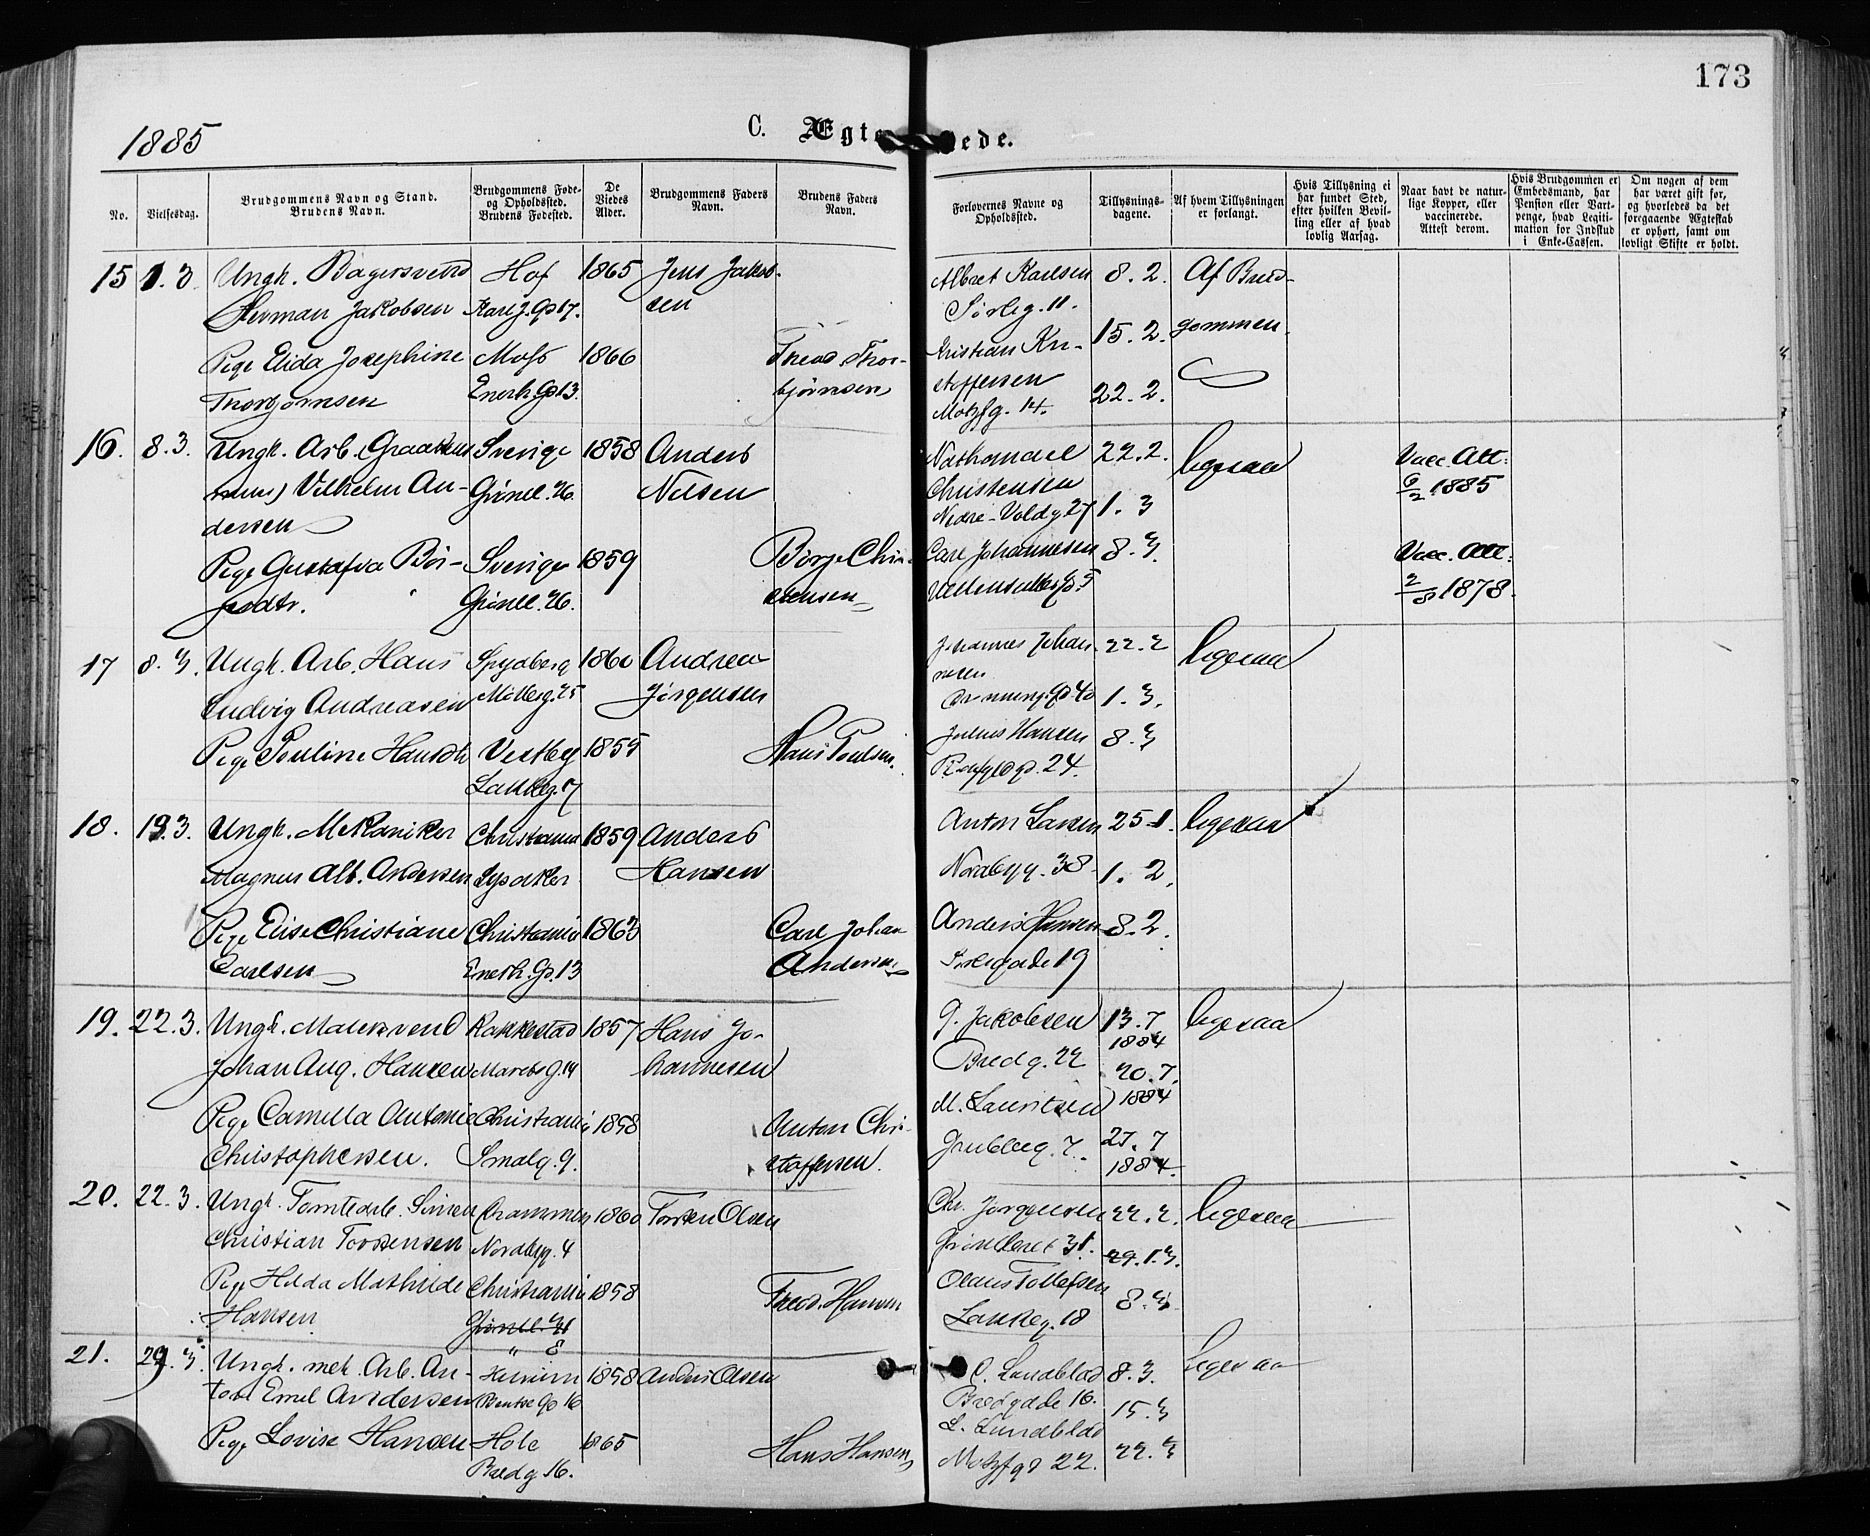 173
1885
C. Ægt ede.
No.
Vielsesdag.
Brudgommens Navn og Stand.
Brudens Navn.
Brudgommens Føde-
og Opholdssted.
Brudens Fødested.
De
Viedes
Alder.
Brudgommens Faders
Navn.
Brudens Faders
Navn.
Forlovernes Navne og
Opholdssted.
Tillysnings-
dagene.
Af hvem Tillysningen
er forlangt.
Hvis Tillysning ei
har fundet Sted,
efter hvilken Bevil-
ling eller af hvad
lovlig Aarsag.
Naar havt de natur-
lige Kopper, eller
vaccinerede.
Attest derom.
Hvis Brudgommen er
Embedsmand, har
Pension eller Vart-
penge, hvad Legiti-
mation for Indskud
i Enke-Cassen.
Om nogen af dem
har været gift før,
og hvorledes da det
foregaaende Ægteskab
er ophørt, samt om
lovligt Skifte er holdt.
15 1. 3. Ungk. Bagersvend Hof 1865 Jens Jakob-
Herman Jakobsen Karl J. Gd 17. sen
Pige Elida Josephine Moss 1866 Theod. Thor-
Thorbjørnsen Enerh. Gd 13. bjørnsen
Albret Karlsen 8. 2. Af Brud-
Sørlig. 11.
Kristian Kri- 15. 2. gommen.
stoffersen
Motzfg. 14. 22. 2.
16. 8. 3. Ungk. Arb. Sverige 1858 Anders
Vilhelm An- Grønl. 26. Nilsen
dersen
Pige Gustafva Bör- Sverige 1859 Börje Chri-
jesdtr. Grønl. 26. stensen
Nathanael 22. 2. ligesaa Vacc. Att:
Christensen 6/2 1885
Nedre-Voldg. 27 1. 3
Carl Johannesen 8. 3 Vacc. Att:
2/8 1878.
17 8. 3. Ungk. Arb. Hans Spydberg 1860 Andreas
Ludvig Andreasen Møllerg. 25 Jørgensen
Pige Pouline Hansdtr. Vestby 1855 Hans Poulsen.
Lakkeg. 7
Johannes Johan- 22. 2 ligesaa
nesen
1. 3.
Julius Hansen 8. 3
24.
18. 1. 3. Ungk. Mekaniker Christiania 1859 Anders
Magnus Alb. Andersen Lysaker Hansen
Pige Elise Christiane Christiania 1863 Carl Johan
Carlsen Enerh. Gd. 13 Andersen
Anton Larsen 25-1. ligesaa
Nordbyg. 38 1. 2.
Anders Hansen 8. 2.
19
19. 22. 3. Ungk. Malersvend Rakkestad 1857 Hans Jo-
Johan Aug. Hansen 14 hannesen
Pige Camilla Antonie Christiania 1858 Anton Chri-
Christophersen. Smalg. 9. stoffersen.
G. Jakobsen 13. 7 ligesaa
1884
Bredg. 22 20. 7.
M. Lauritsen 1884
Grubbeg. 7. 27. 7
1884.
20. 22. 3. Ungk. Tomtearb. Simen Drammen 1860 Torsten Olsen
Christian Torstensen Nordbyg. 4
Pige Hilda Mathilde Christiania 1858 Theod. Hansen
Hansen Grønl. 31
" 8
Chr. Jørgensen 22. 2. ligesaa
Grønlleret 31. 1. 3.
Olaus Tollefsen
Lakkeg. 18 8. 3.
21. 29. 3. Ungk. mek. Arb. An- Hurum 1858 Anders Olsen
ton Emil Andersen 16
Pige Lovise Hansen Hole 1865 Hans Hansen
Bredg 16.
C. Lundblad 8. 3. ligesaa
Bredgade 16.
15. 3
L. Lundblad
Motzfgd 22. 22. 3